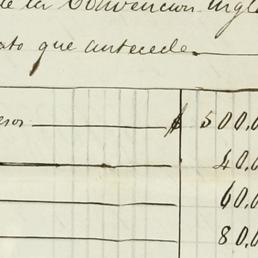 de la Convencion Ingl
ato que antecede.
esos $ 500.0
40.0
60.0
80.0